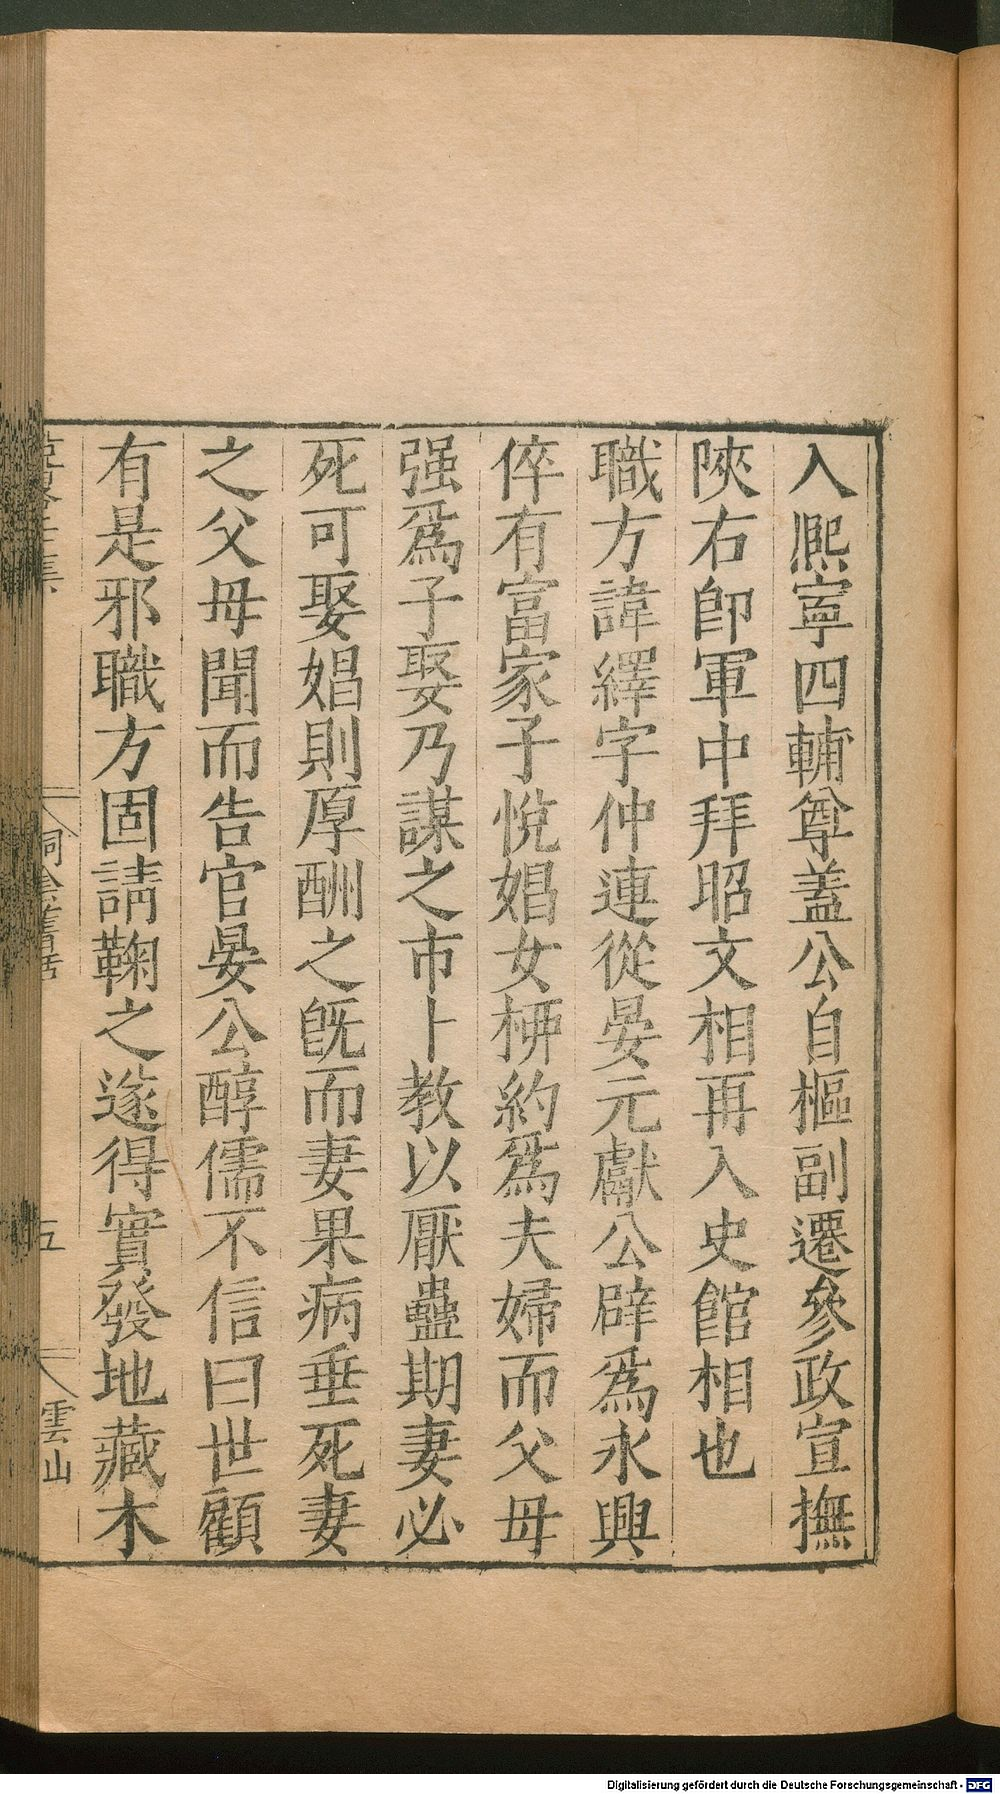 入熈寧四輔尊蓋公自樞副遷參政宣撫
陜右卽軍中拜昭文相再入史館相也
職方諱繹字仲連從晏元獻公辟爲永興
倅有富家子悅娼女栁約爲夫婦而父母
强爲子娶乃謀之市卜教以厭蠱期妻必
死可娶娼則厚酬之旣而妻果病垂死妻
之父母聞而告官晏公醇儒不信曰世顧
有是邪職方固請鞠之遂得實發地藏木
五
雲山
Digitalisierung gefördert durch die Deutsche Forschungsgemeinschaft - DFG